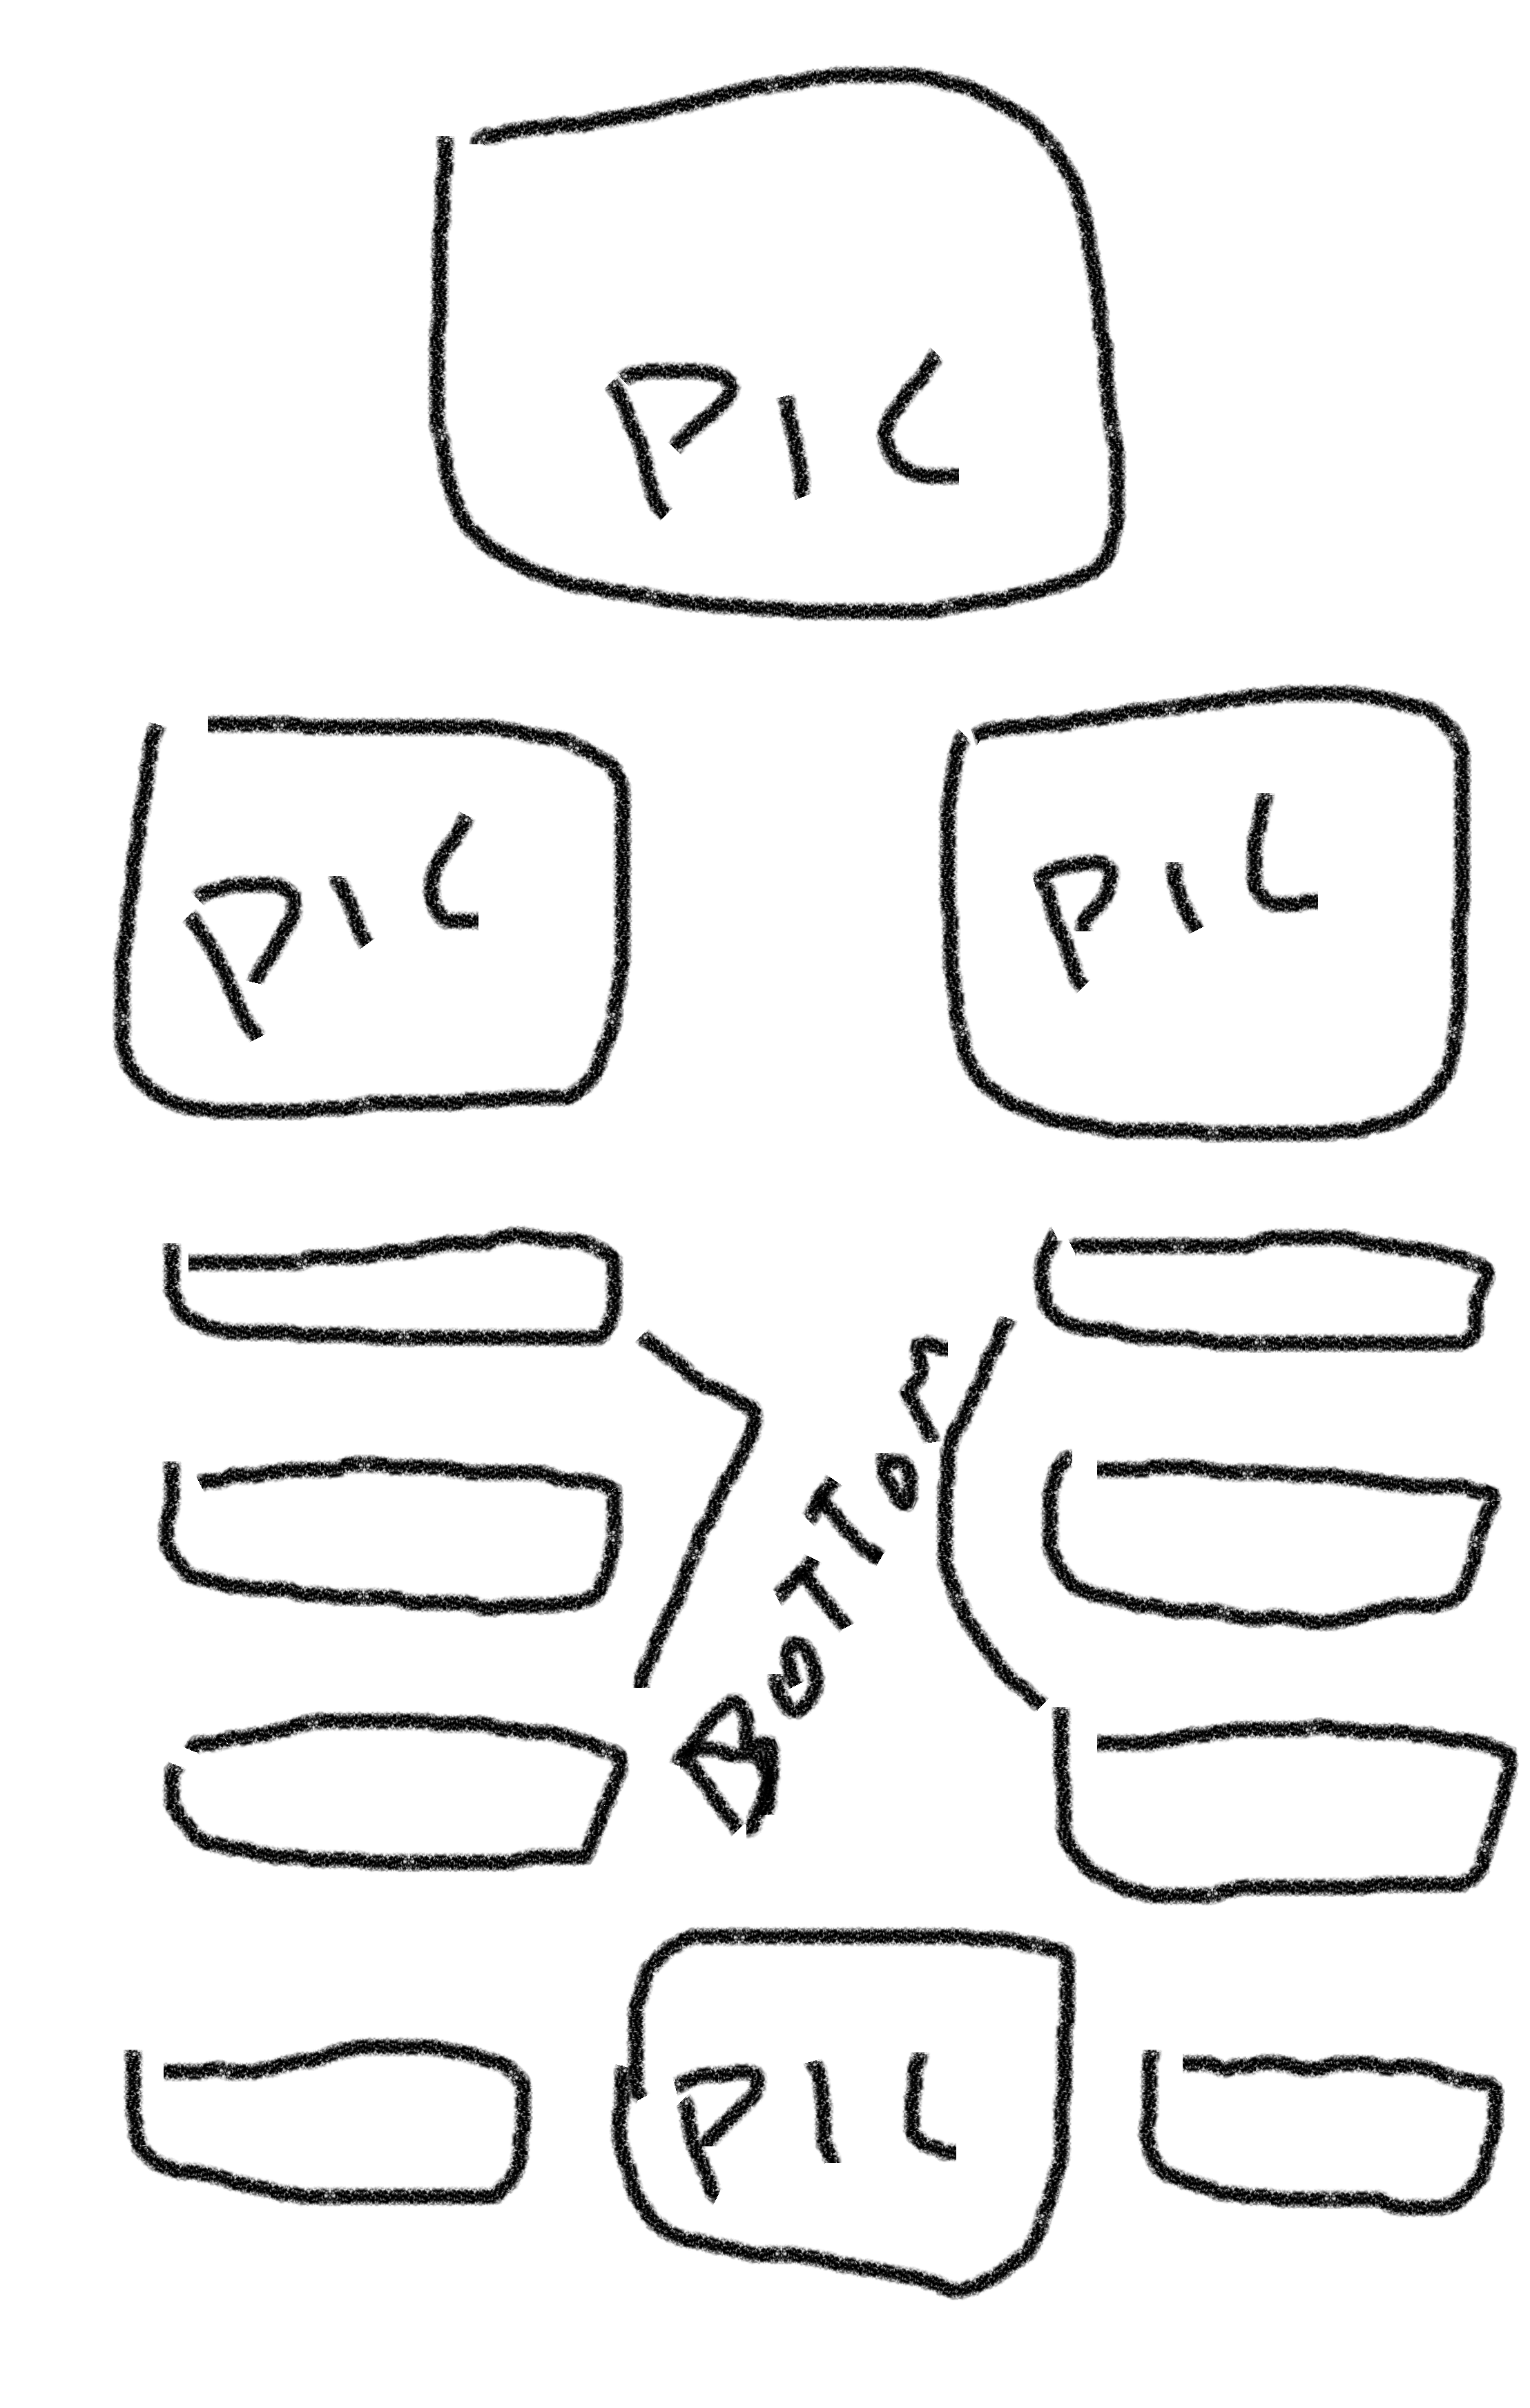 PIC
PIC PIC
BOTTOM
PIC